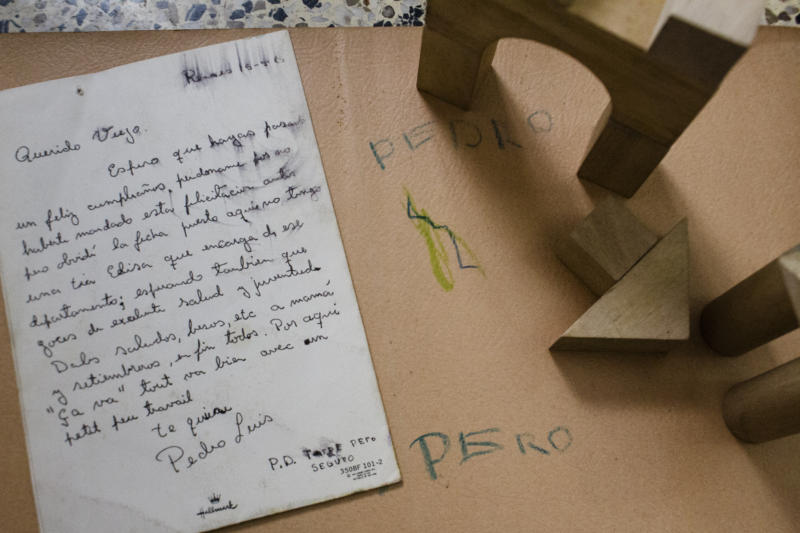 Rennes 16-4-76
Querido Viejo.
Espero que hayas pasado
un feliz cumpleaños, perdoname por no
haberte mandado esta felicitación antes
pero olvidé la fecha puesto aquí no tengo
una tía Elisa que encarga de ese
departamento; esperando tambien que
goces de excelente salud y juventud.
Dales saludos, besos, etc a mamá
y setiembreros, en fin todos. Por aquí
"Ça va" tout va bien avec un
petit peu travail
te quiere
Pedro Luis
P.D. TARDE PERO
SEGURO
350BF 101-2
Hallmark
PEDRO
PERO